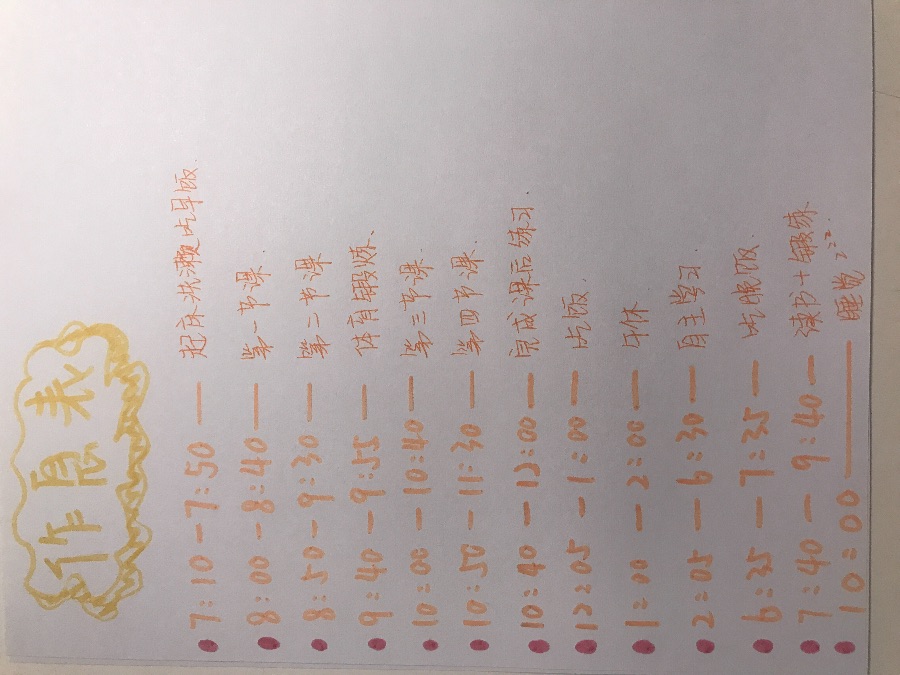 作息表
7:10-7:50 — 起床洗漱吃早饭.
8:00-8:40 — 第一节课.
8:50-9:30 — 第二节课
9:40-9:55 — 体育锻炼、
10:00-10:40 — 第三节课.
10:50-11:30 — 第四节课.
10:40-12:00 — 完成课后练习.
12:05-1:00 — 吃饭.
1:00-2:00 — 午休
2:05-6:30 — 自主学习.
6:35-7:35 — 吃晚饭.
7:40-9:40 — 读书+锻练.
10:00 — 睡觉